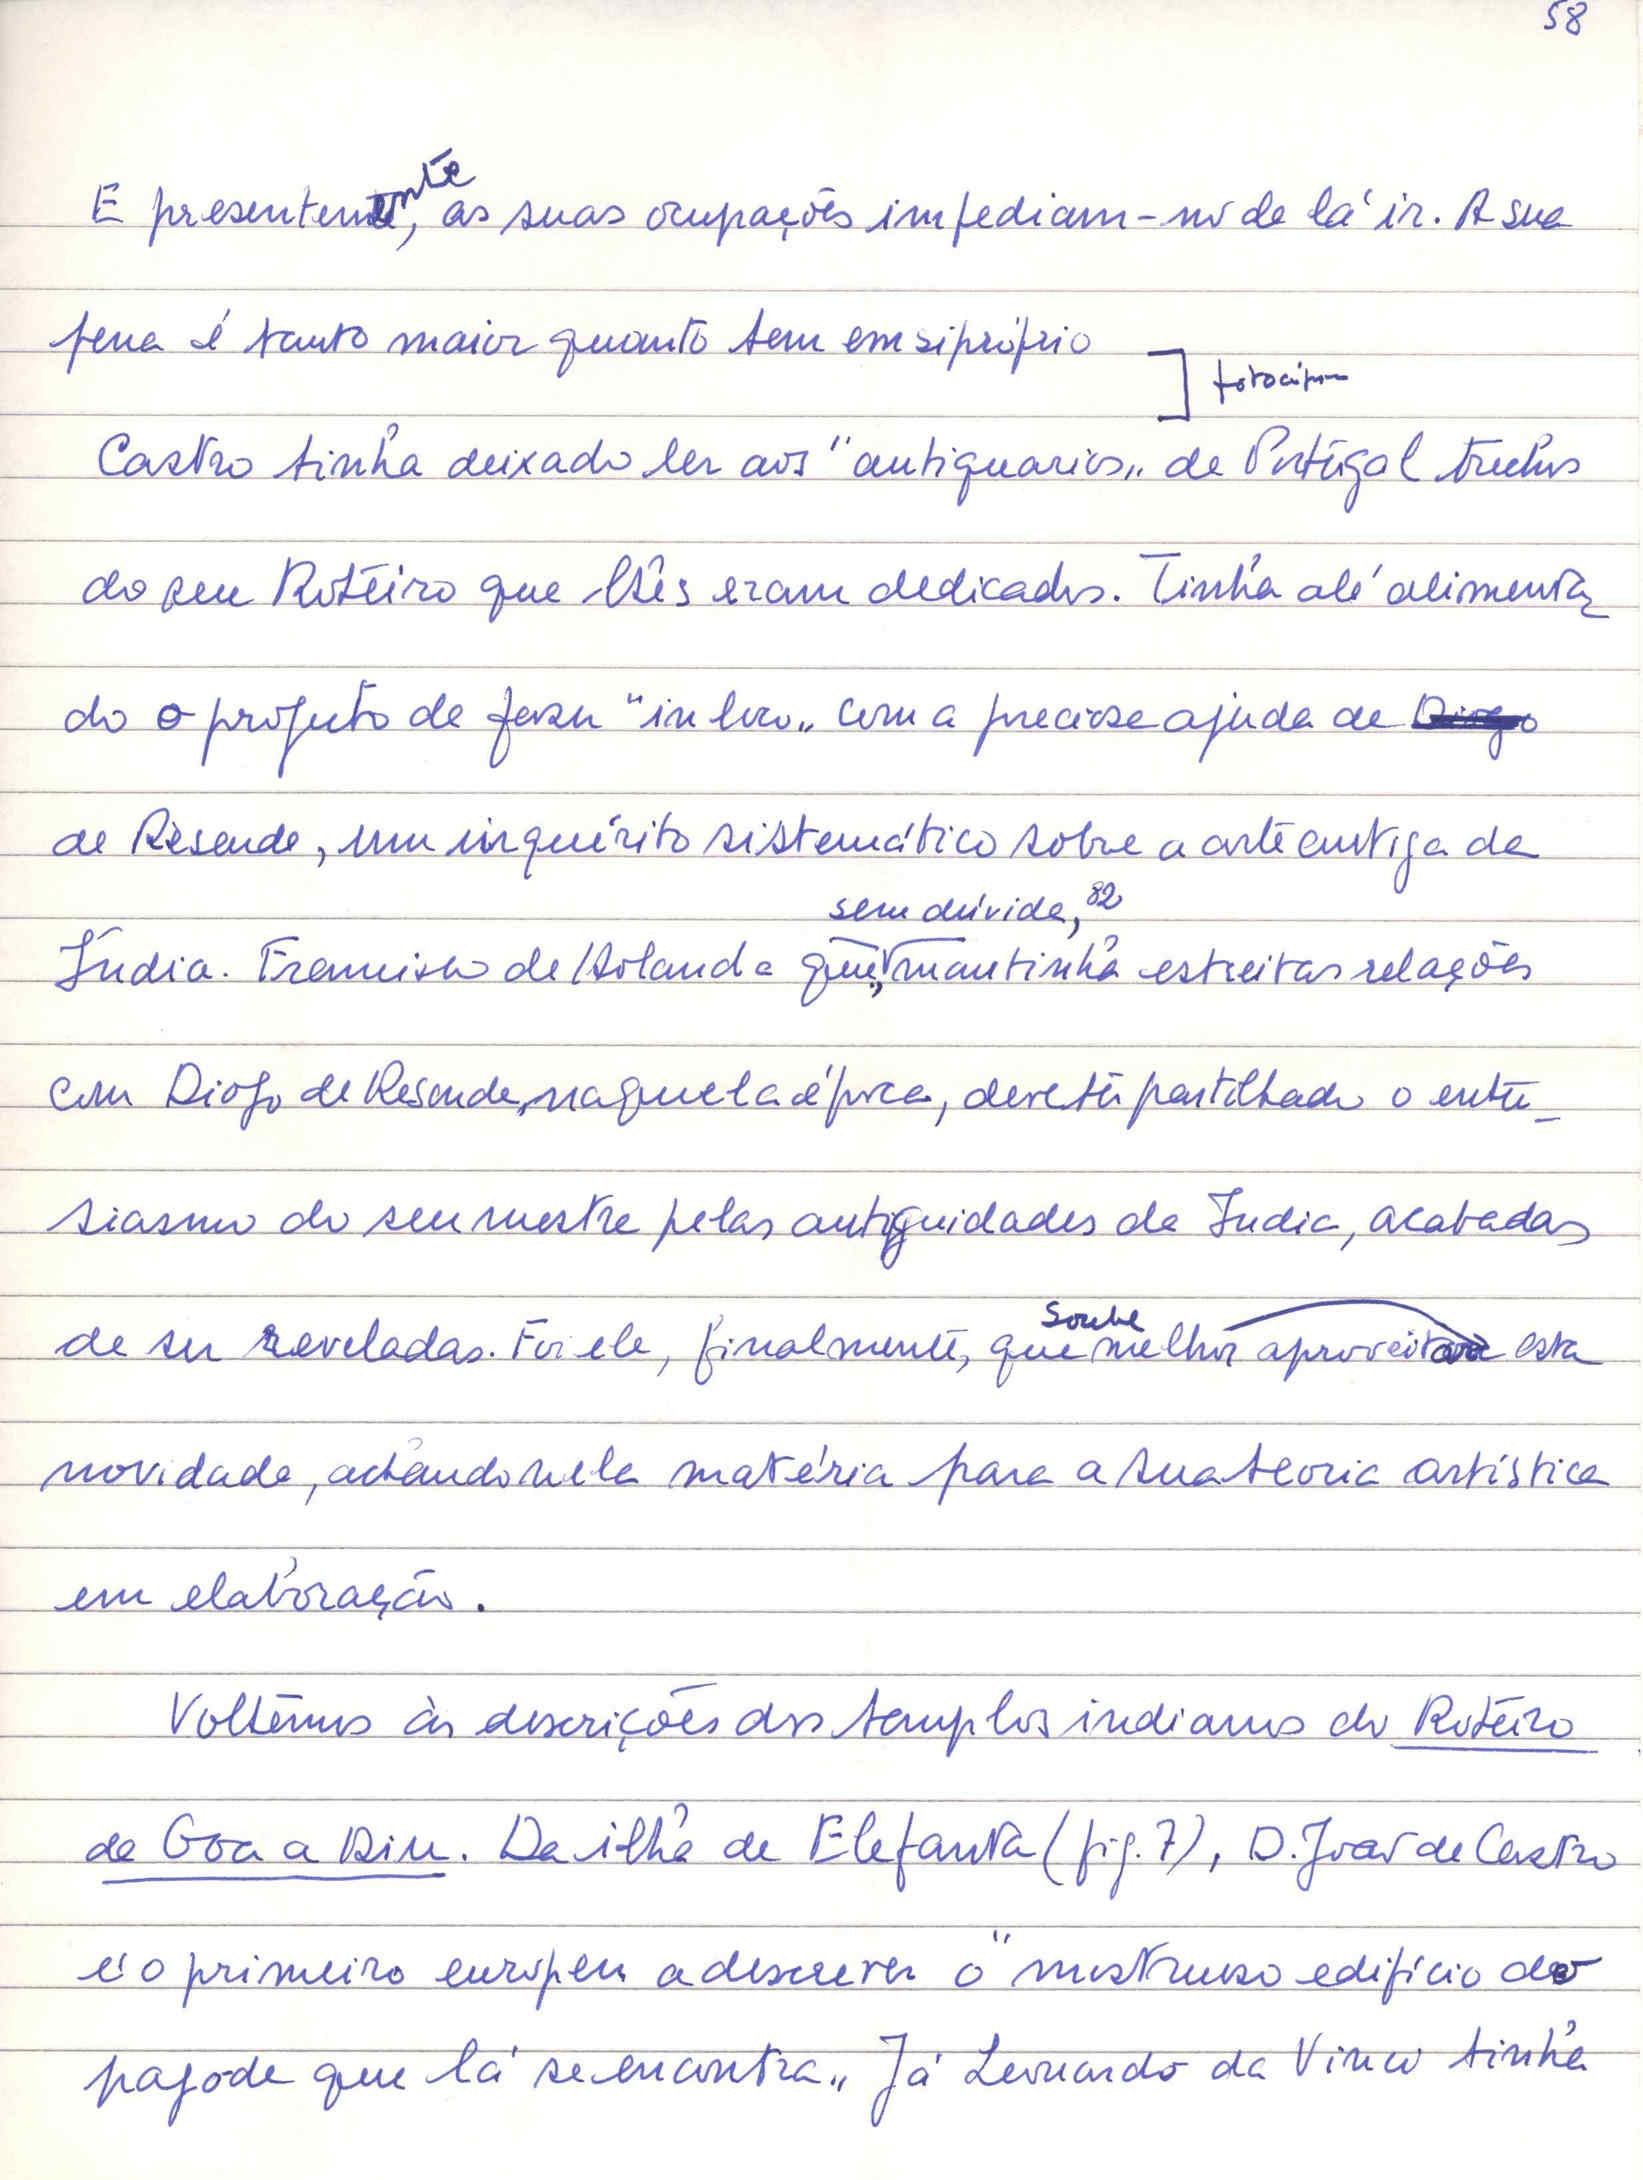 58
E presentemente, as suas ocupações impediam-no de lá ir. A sua
pena é tanto maior quanto tem em si próprio
] fotocópia
Castro tinha deixado ler aos "antiquarios„ de Portugal trechos
do seu Roteiro que lhes eram dedicados. Tinha até alimenta
do o projecto de fazer "in loco„ com a preciosa ajuda de Diogo
de Resende, um inquérito sistemático sobre a arte antiga da
sem dúvida, 82
Índia. Francisco de Holanda que, mantinha estreitas relações
com Diogo de Resende, naquela época, deve ter partilhado o entu-
siasmo do seu mestre pelas antiguidades da India, acabadas
soube
de ser reveladas. Foi ele, finalmente, que melhor aproveitar esta
novidade, achando nela matéria para a sua teoria artística
em elaboração.
Voltemos às descrições dos templos indianos do Roteiro
de Goa a Diu. Da ilha de Elefanta (fig. 7), D. João de Castro
é o primeiro europeu a descrever o "mostruoso edifício do
pagode que lá se encontra„ Já Leonardo da Vinci tinha